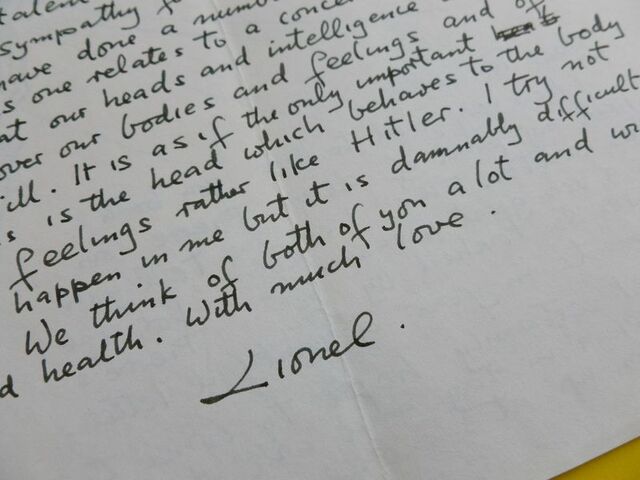 sympathy
have done a number
s one relates to a conce
at our heads and intelligence
over our bodies and feelings and of
ill. It is as if the only important
s is the head which behaves to the body
feelings rather like Hitler. I try not
happen in me but it is damnably difficult
We think of both of you a lot and wi
d health. With much love.
Lionel.